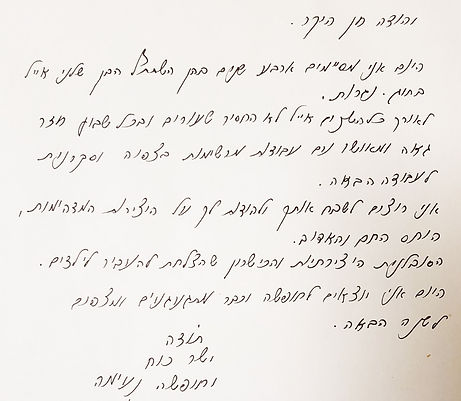 והודה חן היקר.
היום אנו מסיימים ארבע שנים בהן השתתל הבן שלנו אייל
בחוג נגרות.
לאורך כל השנים אייל לא החסיר שעורים ובכל שבוע חזר
גאה ומאושר עם עבודות מרשימות בצפיה וסקרנות
לעבודה הבאה.
אנו רוצים לשבח אותך ולהודות לך על היצירות המדהימות,
היחס החם והאדיב.
הסובלנות היצירתיות והכישרון שהצלחת להעביר לילדים.
היום אנו יוצאים לחופשה וכבר מתגעגעים ומצפים
לשנה הבאה.
תודה
ישר כוח
וחופשה נעימה